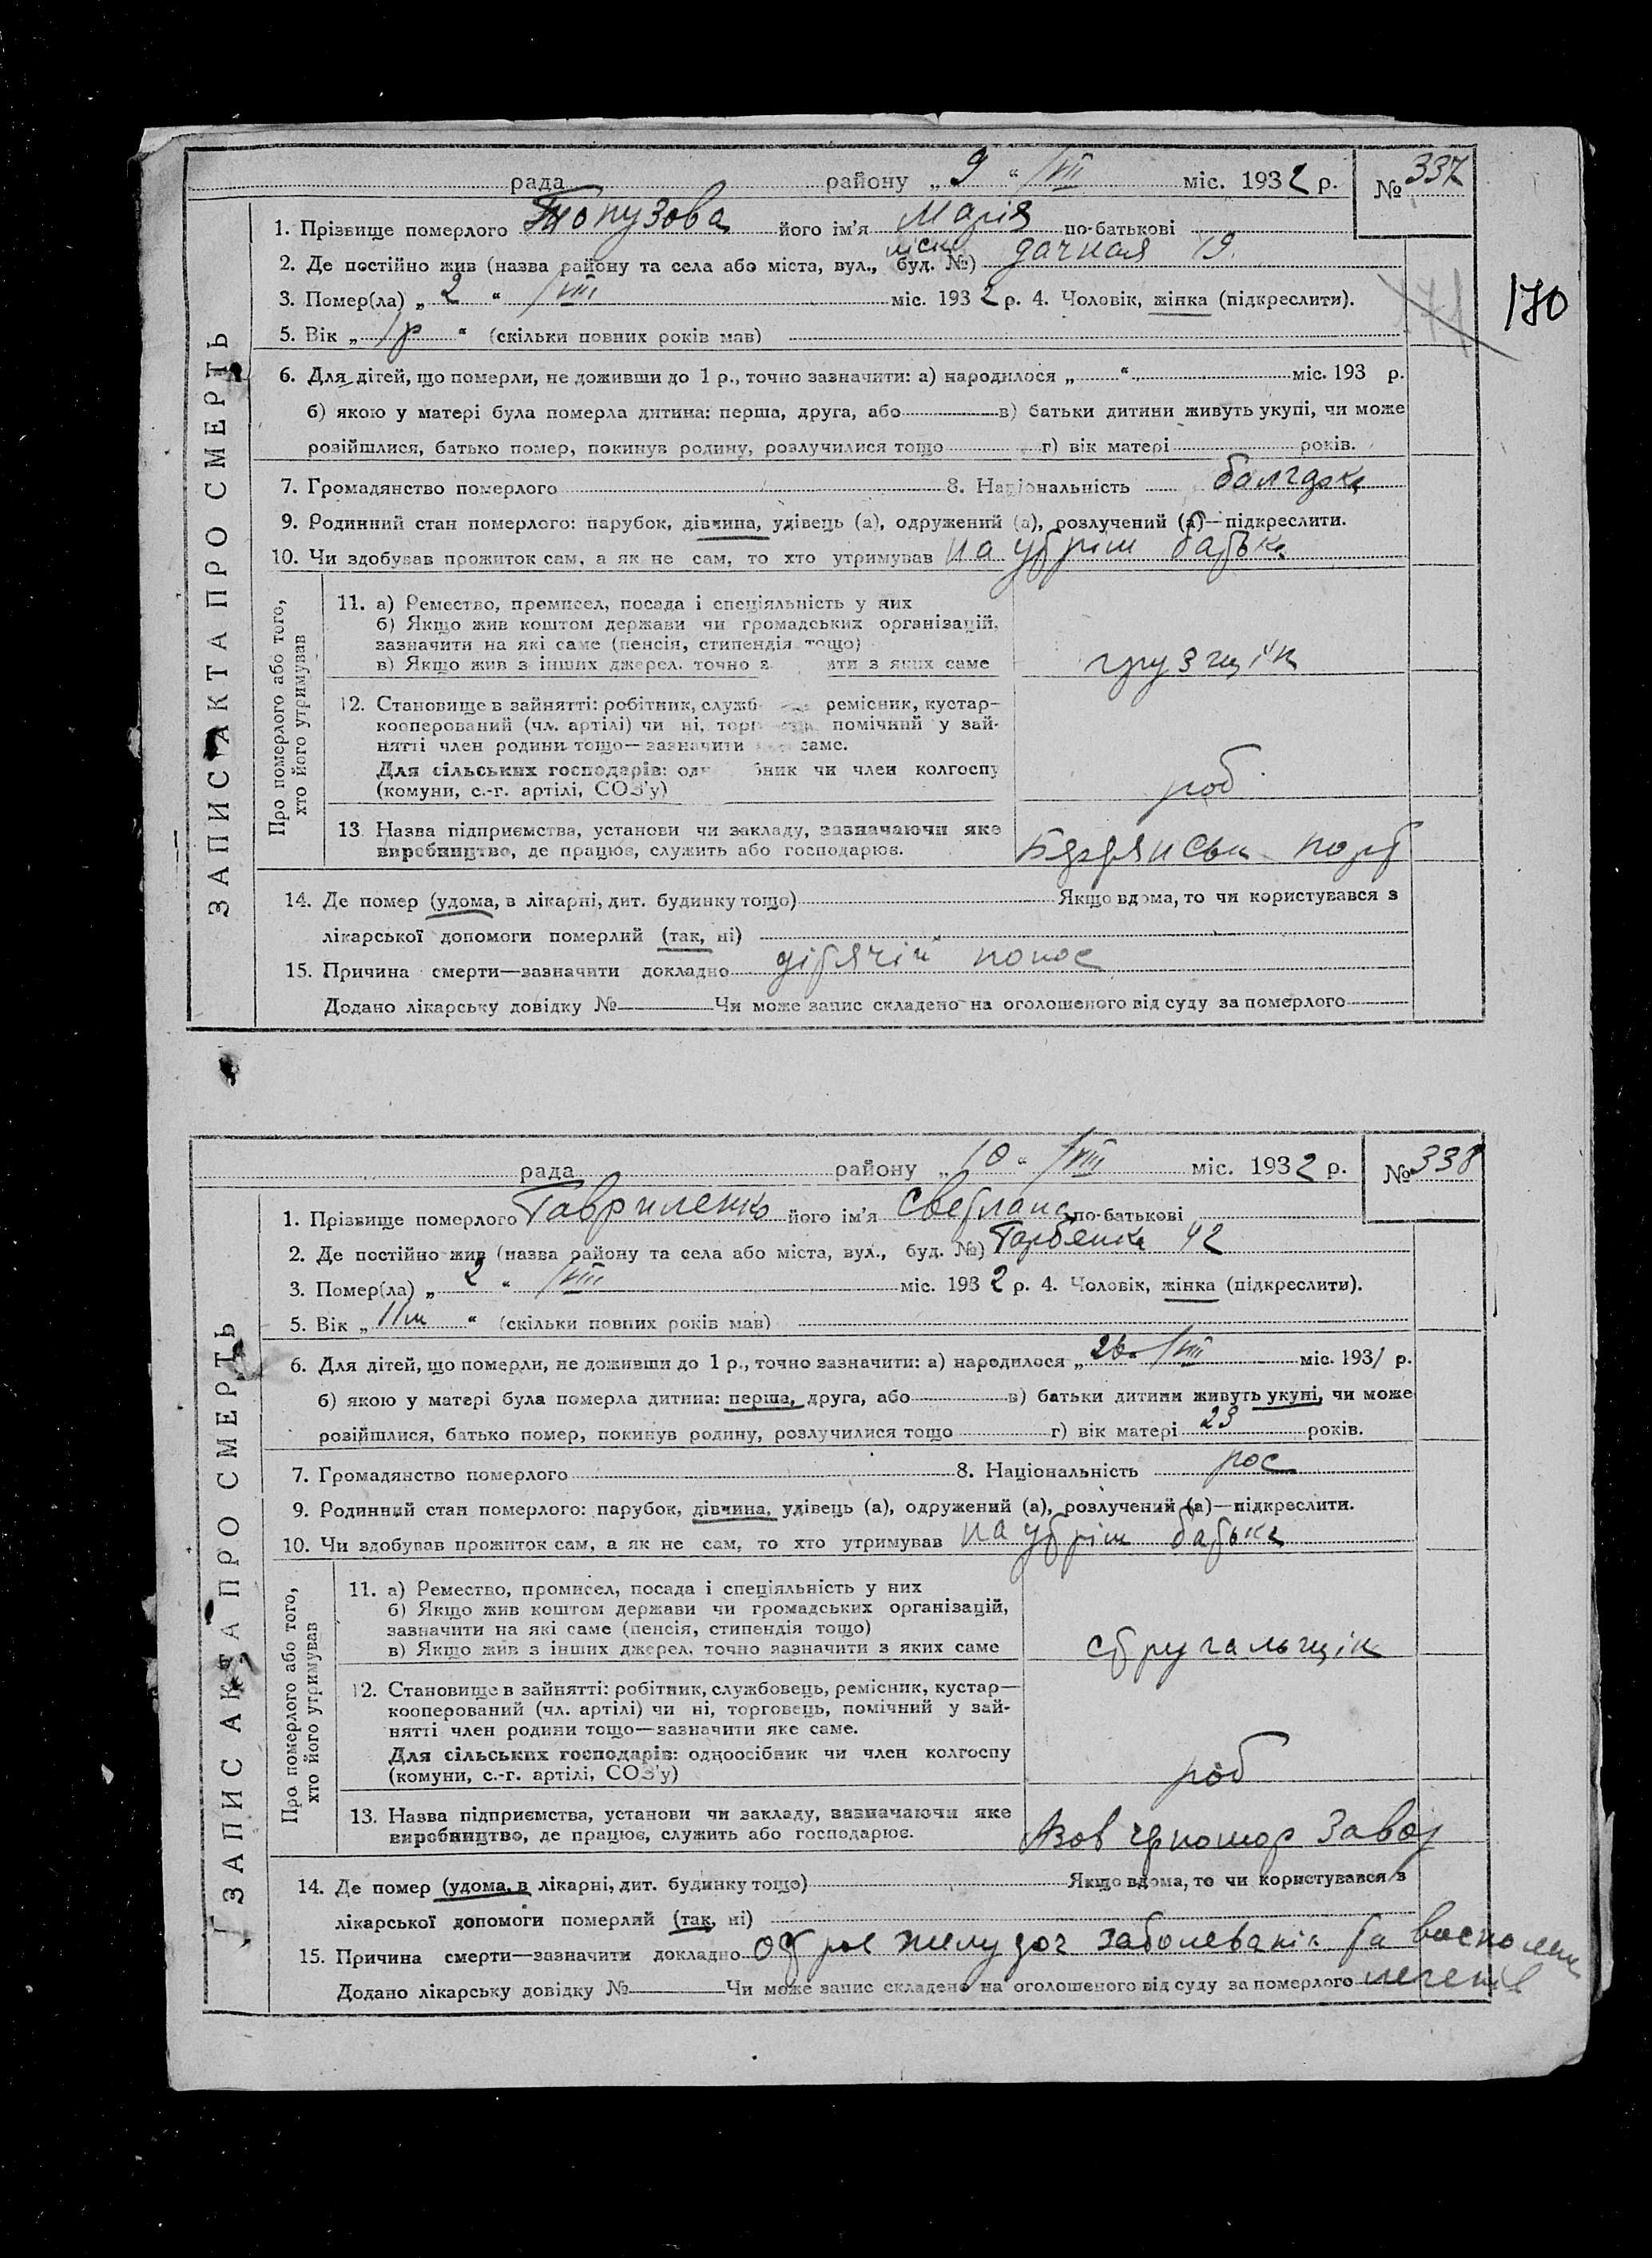 рада району „ 9 “ /VIII міс. 1932 р. № 337
1. Прізвище померлого Топузова його ім'я Марія по-батькові
2. Де постійно жив (назва району та села або міста, вул., буд. №) дачная 19.
3. Помер(ла) „ 2 “ /VIII міс. 1932 р. 4. Чоловік, жінка (підкреслити).
170
5. Вік „ 1 р “ (скільки повних років мав)
6. Для дітей, що померли, не доживши до 1 р., точно зазначити: а) народилося „ “ міс. 193 р.
б) якою у матері була померла дитина: перша, друга, або в) батьки дитини живуть укупі, чи може
розійшлися, батько помер, покинув родину, розлучилися тощо г) вік матері років.
7. Громадянство померлого 8. Національність болгарка
9. Родинний стан померлого: парубок, дівчина, удівець (а), одружений (а), розлучений (а)—підкреслити.
10. Чи здобував прожиток сам, а як не сам, то хто утримував на утрім батька
ЗАПИС АКТА ПРО СМЕРТЬ
Про померлого або того,
хто його утримував
11. а) Ремество, промисел, посада і спеціяльність у них
б) Якщо жив коштом держави чи громадських організацій,
зазначити на які саме (пенсія, стипендія тощо)
в) Якщо жив з інших джерел, точно з яти з яких саме грузчік
12. Становище в зайнятті: робітник, служб ремісник, кустар—
кооперований (чл. артілі) чи ні, торг помічний у зай-
нятті член родини тощо—зазначити саме.
Для сільських господарів: од бник чи член колгоспу
(комуни, с.-г. артілі, СОЗ'у) роб
13. Назва підприємства, установи чи закладу, зазначаючи яке
виробництво, де працює, служить або господарює. Бердянськ порт
14. Де помер (удома, в лікарні, дит. будинку тощо) Якщо вдома, то чи користувався з
лікарської допомоги померлий (так, ні)
15. Причина смерти—зазначити докладно дітячій понос
Додано лікарську довідку № Чи може запис складено на оголошеного від суду за померлого
рада району „ 10 “ /VIII міс. 1932 р. № 338
1. Прізвище померлого Гавриленко його ім'я Светлана по-батькові
2. Де постійно жив (назва району та села або міста, вул., буд. №) Горбенка 42
3. Помер(ла) „ 2 “ /VIII міс. 1932 р. 4. Чоловік, жінка (підкреслити).
5. Вік „ 11 м “ (скільки повних років мав)
6. Для дітей, що померли, не доживши до 1 р., точно зазначити: а) народилося „ 26 “ /VIII міс. 1931 р.
б) якою у матері була померла дитина: перша, друга, або в) батьки дитини живуть укупі, чи може
розійшлися, батько помер, покинув родину, розлучилися тощо г) вік матері 23 років.
7. Громадянство померлого 8. Національність рос
9. Родинний стан померлого: парубок, дівчина, удівець (а), одружений (а), розлучений (а)—підкреслити.
10. Чи здобував прожиток сам, а як не сам, то хто утримував на утрім батька
ЗАПИС АКТА ПРО СМЕРТЬ
Про померлого або того,
хто його утримував
11. а) Ремество, промисел, посада і спеціяльність у них
б) Якщо жив коштом держави чи громадських організацій,
зазначити на які саме (пенсія, стипендія тощо)
в) Якщо жив з інших джерел, точно зазначити з яких саме стругальщік
12. Становище в зайнятті: робітник, службовець, ремісник, кустар—
кооперований (чл. артілі) чи ні, торговець, помічний у зай-
нятті член родини тощо—зазначити яке саме.
Для сільських господарів: одноосібник чи член колгоспу
(комуни, с.-г. артілі, СОЗ'у) роб
13. Назва підприємства, установи чи закладу, зазначаючи яке
виробництво, де працює, служить або господарює. Азов чрномор завод
14. Де помер (удома, в лікарні, дит. будинку тощо) Якщо вдома, то чи користувався з
лікарської допомоги померлий (так, ні)
15. Причина смерти—зазначити докладно острое желудоч заболеванія та воспален
Додано лікарську довідку № Чи може запис складено на оголошеного від суду за померлого легенів